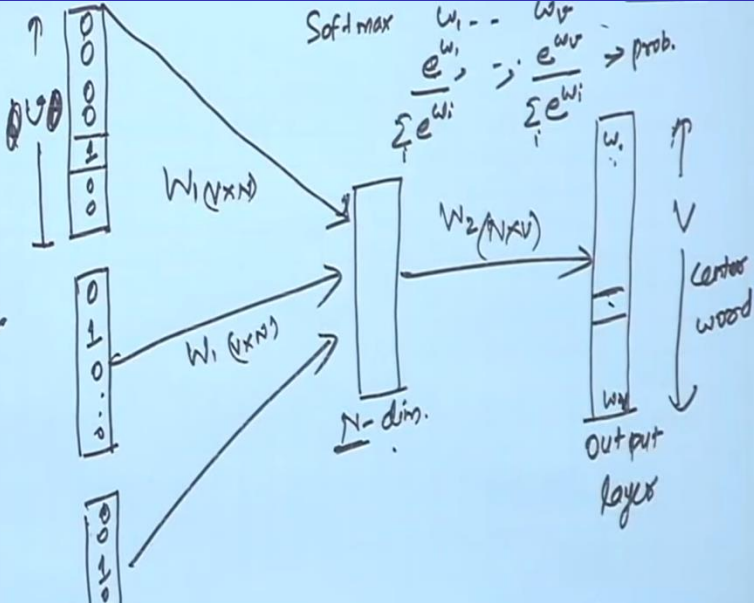 Softmax w₁ -- wᵥ
e^w₁ / Σᵢ e^wᵢ , - , e^wᵥ / Σᵢ e^wᵢ → prob.
0
0
0
0
1
0
0
V
W₁(V×N)
0
1
0
:
0
W₁(V×N)
0
0
1
0
N-dim.
W₂(N×V)
w₁
:
V
center
word
output
layer